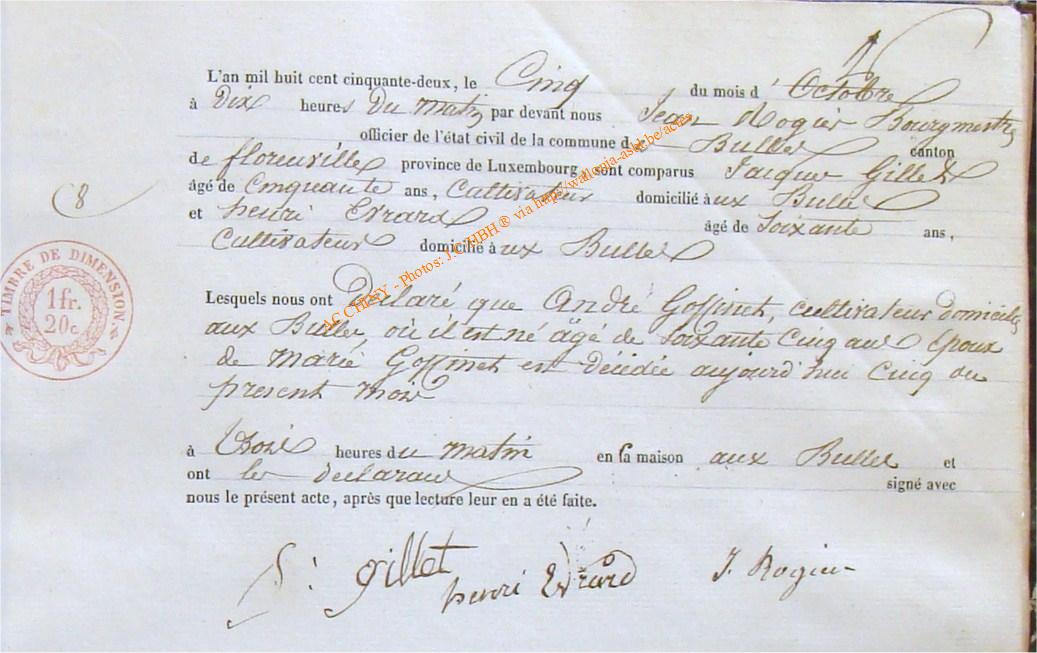 L'an mil huit cent cinquante-deux, le Cinq du mois d' Octobre
à Dix heures Du matin par devant nous Jean Rogier Bourgmestre
officier de l'état civil de la commune de Bulles canton
de florenville province de Luxembourg, sont comparus Jacques Gillet
âgé de Cinqueante ans, Cultivateur domicilié aux Bulles
et henri Evrard âgé de Soixante ans,
Cultivateur domicilié aux Bulles
8
TIMBRE DE DIMENSION
1 fr.
20 c
Lesquels nous ont Declaré que André Goffinet, cultivateur domicilié
aux Bulles, où il est né âgé de Soixante Cinq ans Epoux
de Marie Goffinet est Décédée aujourd'hui Cinq du
present mois
à Trois heures du matin en sa maison aux Bulles et
ont les declarans signé avec
nous le présent acte, après que lecture leur en a été faite.
gillet
henri Evrard
J. Rogier
AC CHINY - Photos: J.C. HBH ® via http://wallonia-asbl.be/actes